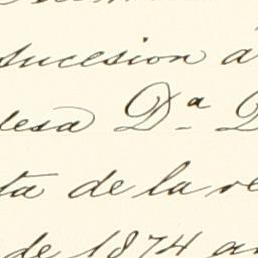 sucesion á
desa Dª D
ta de la re
de 1874 an